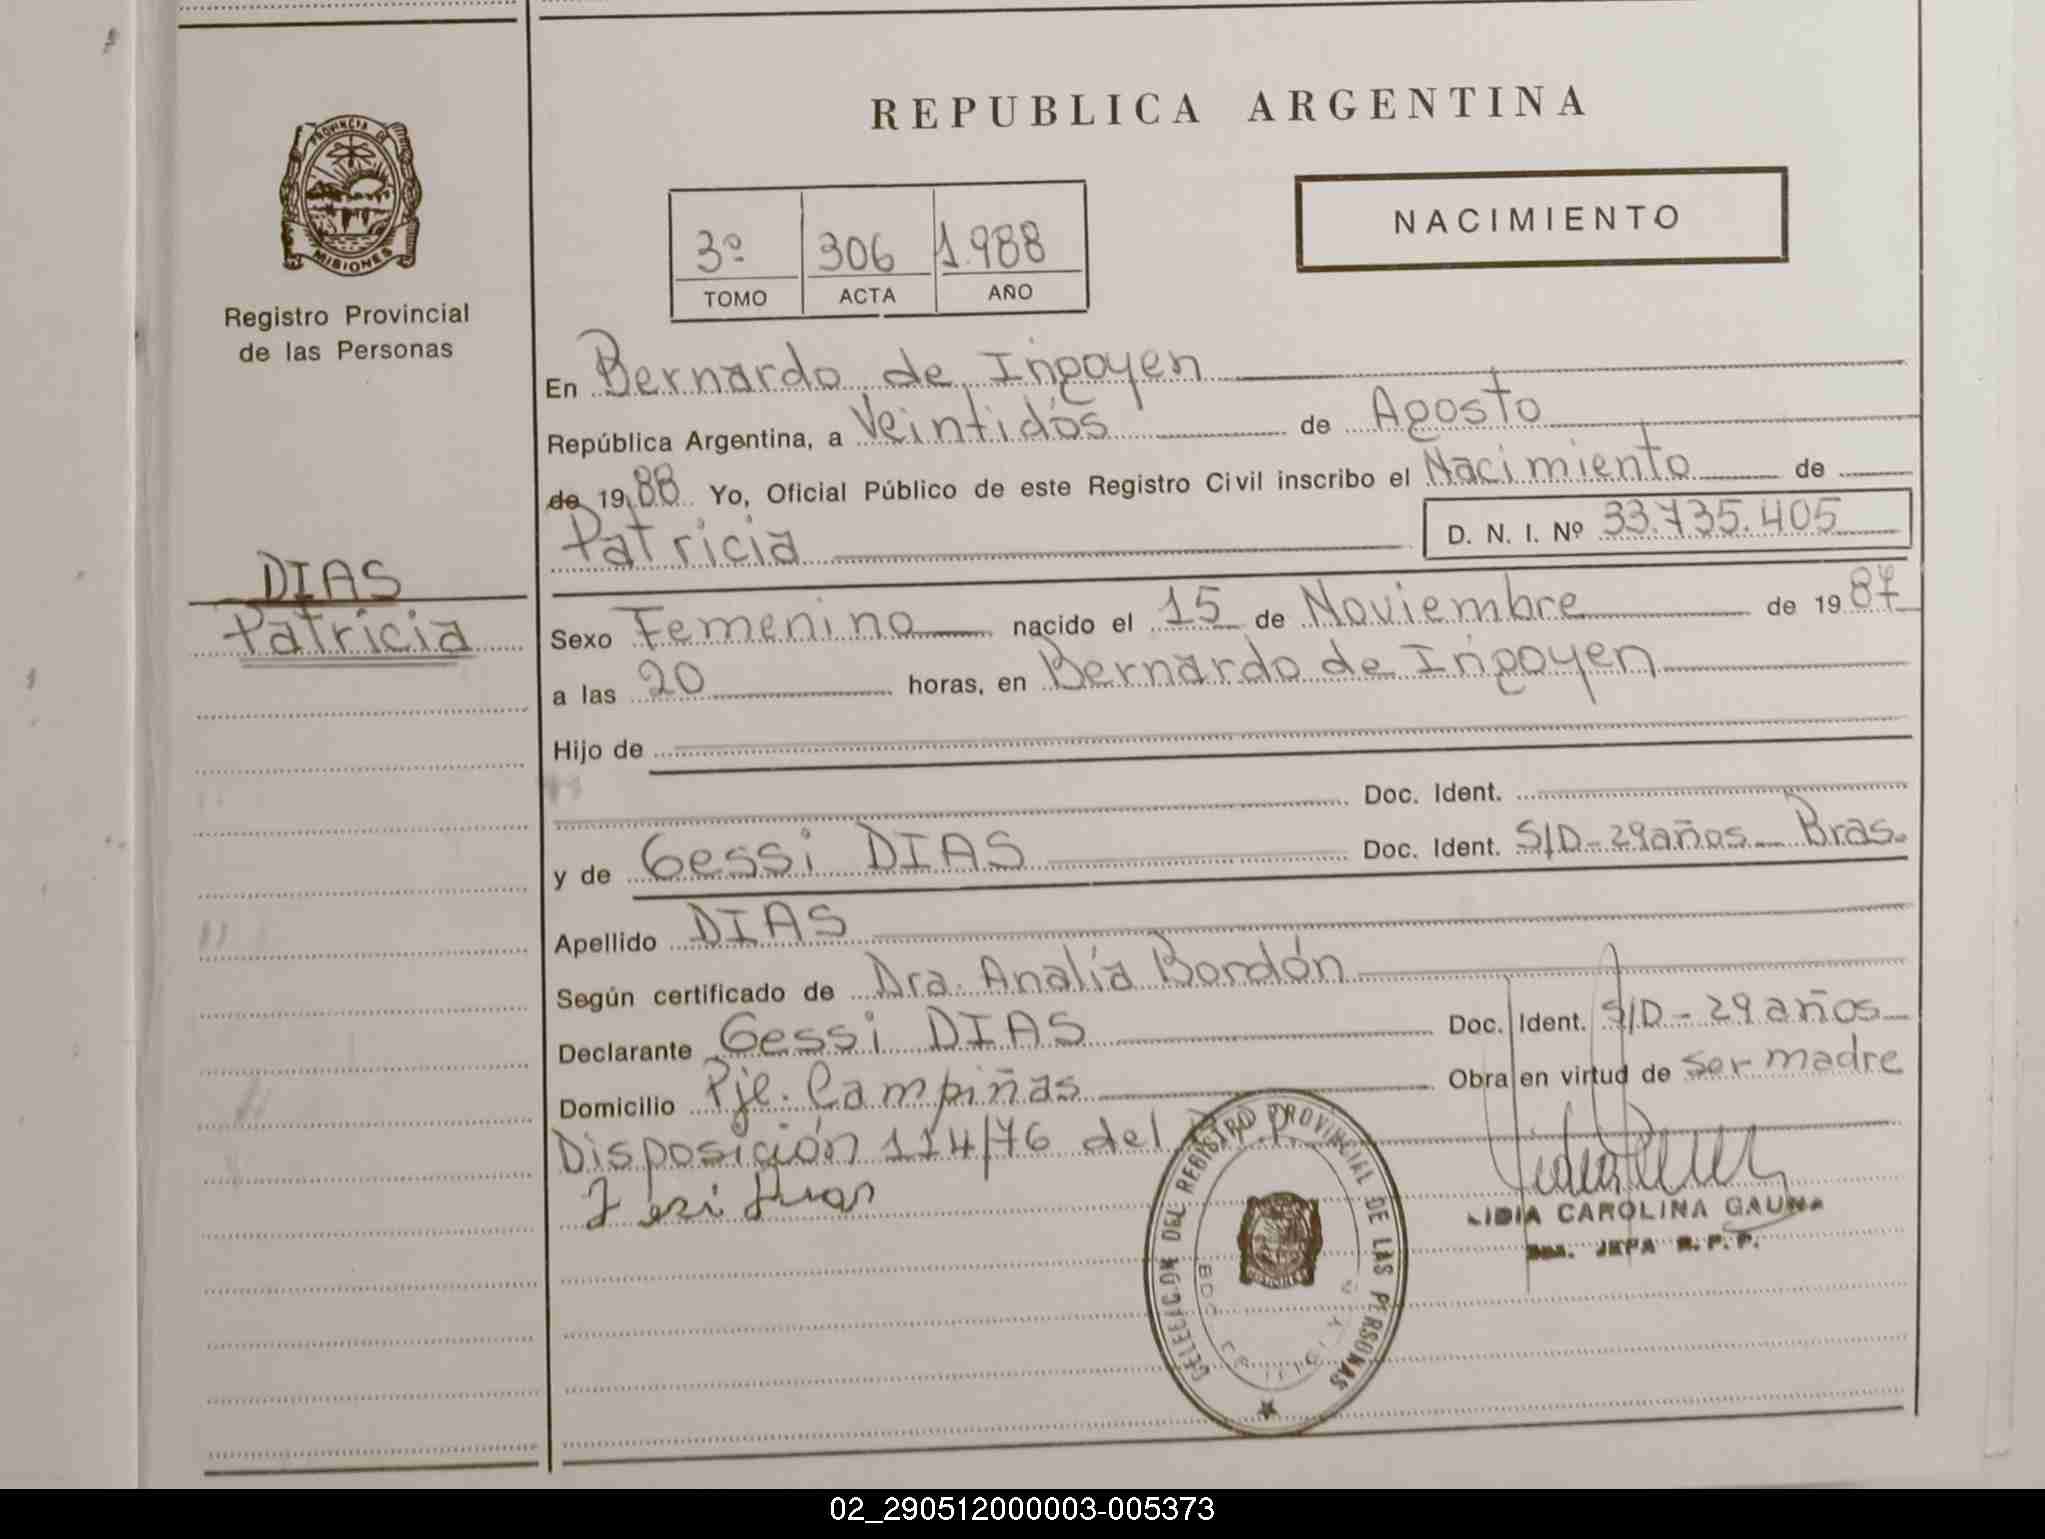 REPUBLICA ARGENTINA
PROVINCIA DE
MISIONES
Registro Provincial
de las Personas
NACIMIENTO
3º 306 1.988
TOMO ACTA AÑO
En Bernardo de Irigoyen
República Argentina, a Veintidós de Agosto
de 1988 Yo, Oficial Público de este Registro Civil inscribo el Nacimiento de
Patricia D. N. I. Nº 33.735.405
DIAS
Patricia
Sexo Femenino nacido el 15 de Noviembre de 1987
a las 20 horas, en Bernardo de Irigoyen
Hijo de
Doc. Ident.
y de Gessi DIAS Doc. Ident. S/D-29años Bras.
Apellido DIAS
Según certificado de Dra. Analía Bordón
Declarante Gessi DIAS Doc. Ident. S/D-29años
Domicilio Pje. Campiñas Obra en virtud de ser madre
Disposición 114/76 del
DEL REGISTRO PROVINCIAL DE LAS PERSONAS
LIDIA CAROLINA GAUNA
JEFA R.P.P.
02_290512000003-005373